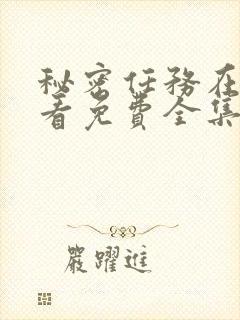 秘密任務在
看免費全集
嚴躍進